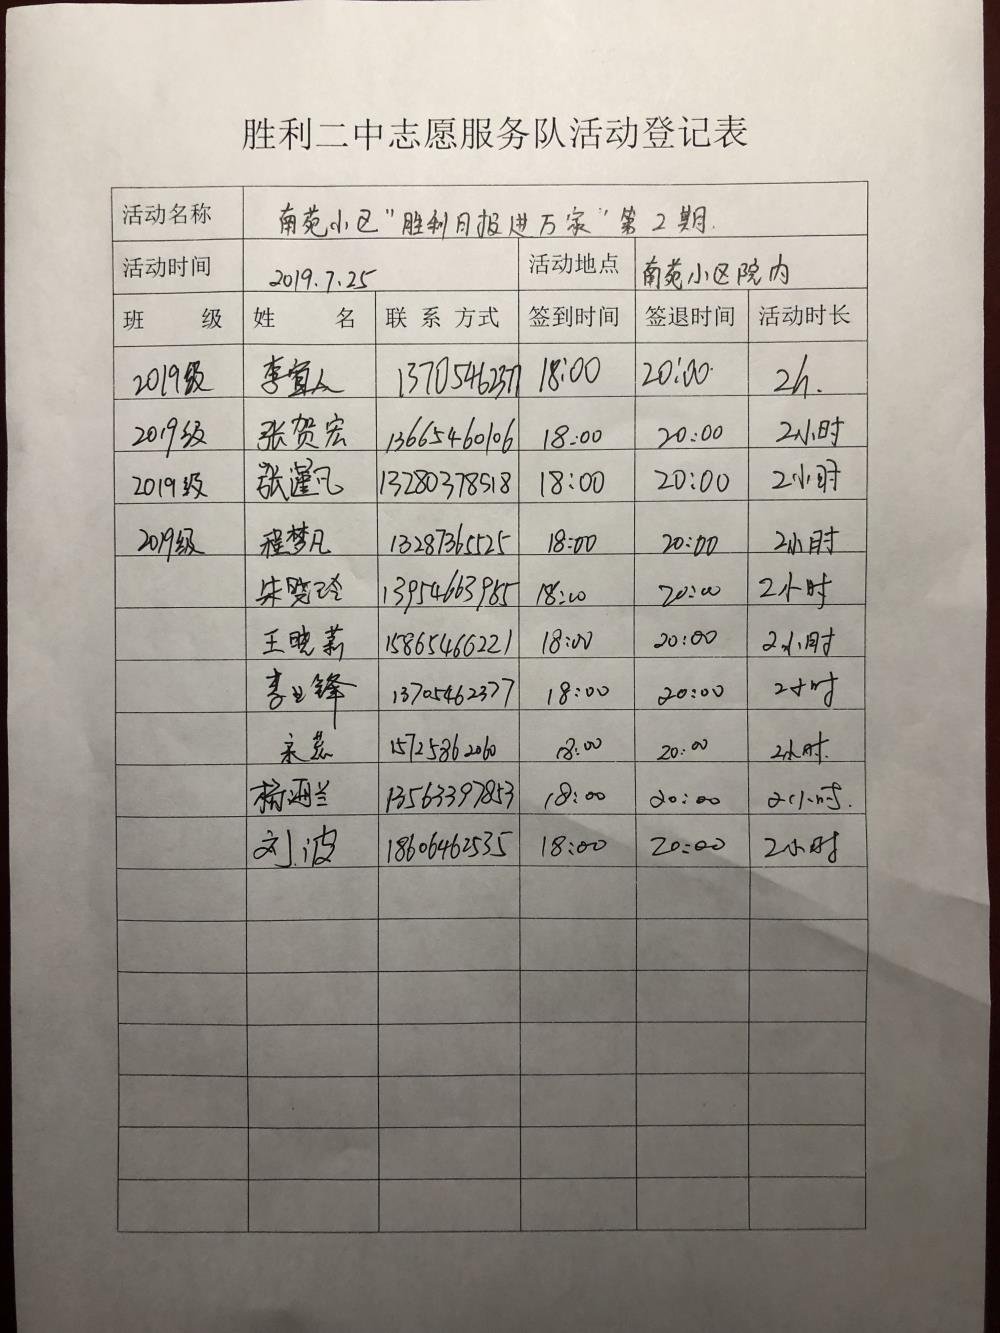 胜利二中志愿服务队活动登记表
活动名称 南苑小区"胜利日报进万家"第2期.
活动时间 2019.7.25 活动地点 南苑小区院内
班 级 姓 名 联系方式 签到时间 签退时间 活动时长
2019级 李宜人 13705462377 18:00 20:00 2h.
2019级 张贺宏 13665460106 18:00 20:00 2小时
2019级 张瀽凡 13280378518 18:00 20:00 2小时
2019级 程梦凡 13287365525 18:00 20:00 2小时
宋晓玲 13954663985 18:00 20:00 2小时
王晓燕 15865466221 18:00 20:00 2小时
李 锋 13705462377 18:00 20:00 2小时
15725862060 18:00 20:00 2小时.
杨海兰 13563397853 18:00 20:00 2小时.
刘波 18606462535 18:00 20:00 2小时